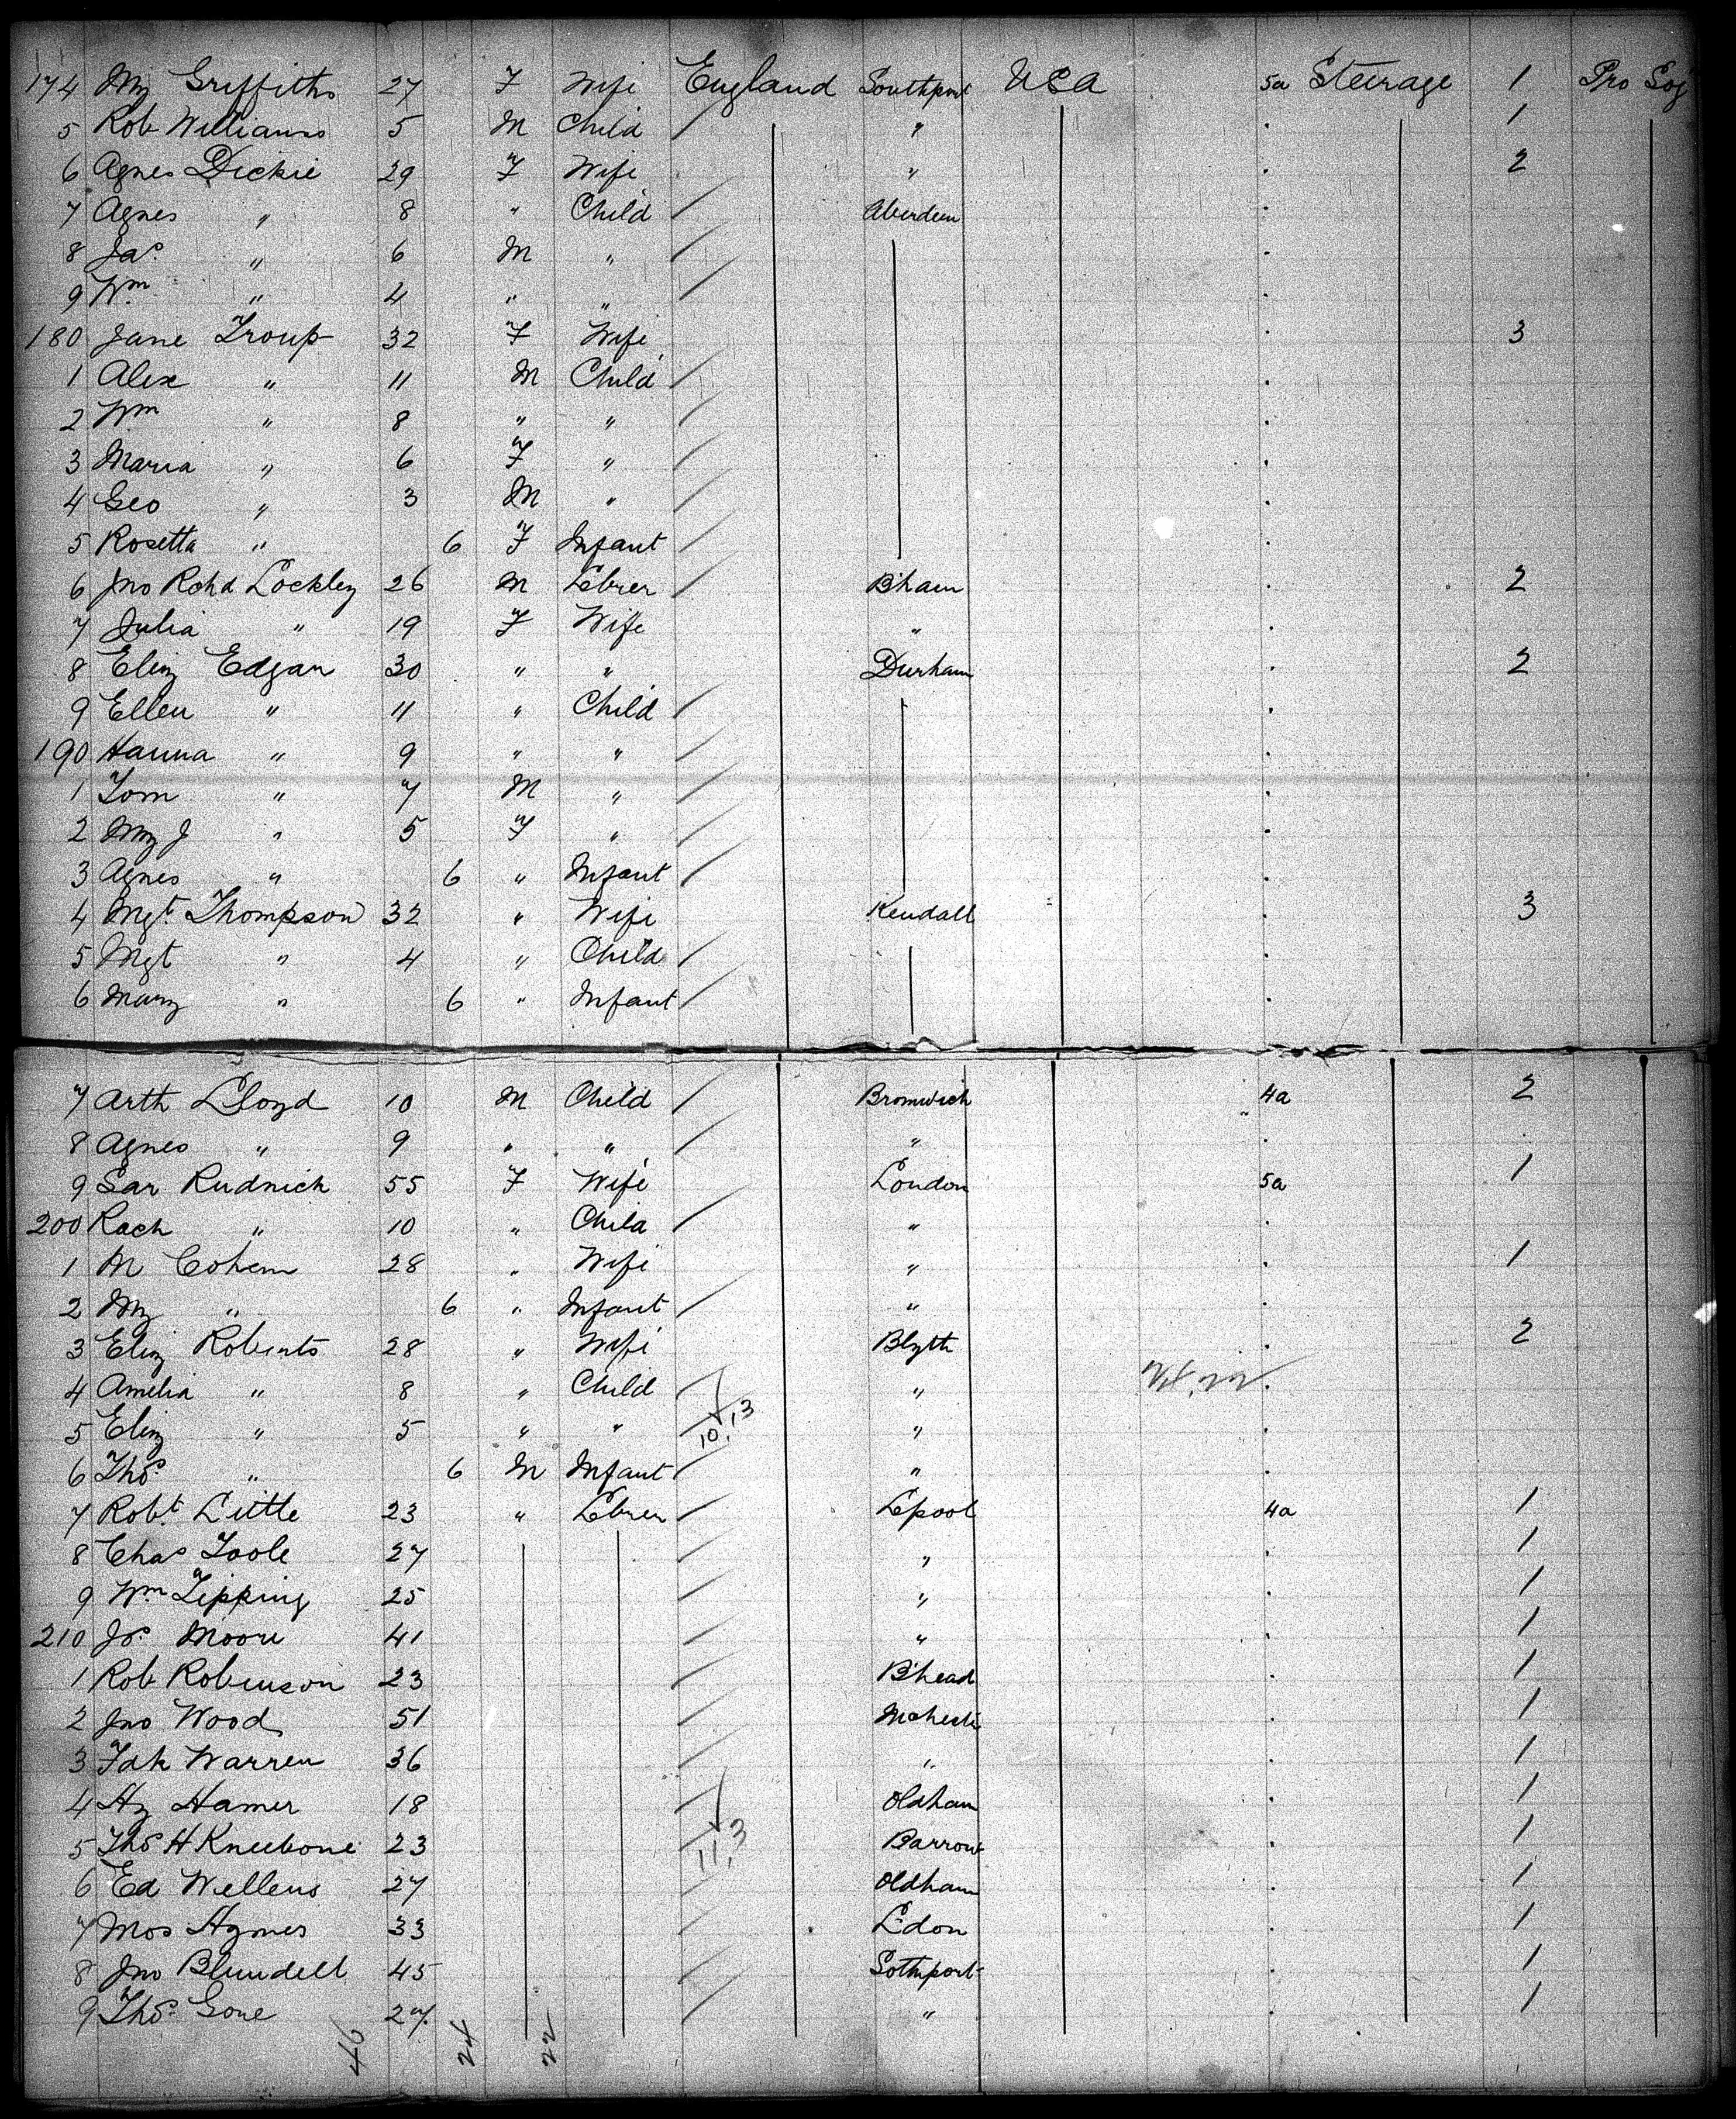 174 My Griffiths 27 F Wife England Southport USA 5a Steerage 1 Pro Soj
5 Rob Williams 5 M Child " 1
6 Agnes Dickie 29 F Wife " 2
7 Agnes " 8 " Child Aberdeen
8 Jas " 6 M "
9 Wm " 4 " "
180 Jane Troup 32 F Wife 3
1 Alex " 11 M Child
2 Wm " 8 " "
3 Maria " 6 F "
4 Geo " 3 M "
5 Rosetta " 6 F Infant
6 Jno Rchd Lockley 26 M Lbrer B'ham 2
7 Julia " 19 F Wife "
8 Eliz Edgar 30 " " Durham 2
9 Ellen " 11 " Child
190 Hanna " 9 " "
1 Tom " 7 M "
2 My J " 5 F "
3 Agnes " 6 " Infant
4 Mgt Thompson 32 " Wife Kendall 3
5 Mgt " 4 " Child
6 Mary " 6 " Infant
7 Arth Lloyd 10 M Child Bromwich 4a 2
8 Agnes " 9 " " "
9 Sar Rudnick 55 F Wife London 5a 1
200 Rach " 10 " Child "
1 M Cohem 28 " Wife " 1
2 My " 6 " Infant "
3 Eliz Roberts 28 " Wife Blyth 2
4 Amelia " 8 " Child "
5 Eliz " 5 " " 10,13 "
6 Thos " 6 M Infant "
7 Robt Little 23 " Lbrer Lpool 4a 1
8 Chas Toole 27 " 1
9 Wm Tipping 25 " 1
210 Js Moore 41 " 1
1 Rob Robinson 23 B'head 1
2 Jno Wood 51 Mchestr 1
3 Fdk Warren 36 " 1
4 Hy Hamer 18 Oldham 1
5 Thos H Kneebone 23 11,3 Barrow 1
6 Ed Wellens 27 Oldham 1
7 Mos Hymes 33 Ldon 1
8 Jno Blundell 45 Sothport 1
9 Thos Gore 27 " 1
46 24 22